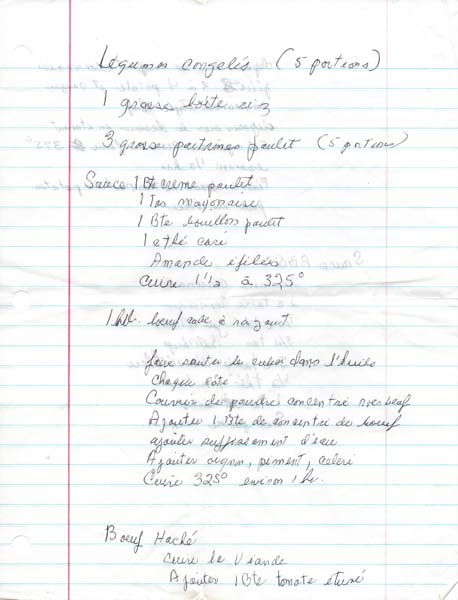 Légumes congelés (5 portions)
1 grosse boîte riz
3 grosse poitrines poulet (5 portions)
Sauce 1 Bte creme poulet
1 Tas mayonaise
1 Bte bouillon poulet
1 c thé cari
Amande éfilés
Cuire 1 1/2 à 325°
1 lb. boeuf cube à ragout
faire sauter le cube dans l'huile
Chaque côté
Couvrir de poudre concentré rosbeaf
Ajouter 1 Bte de concentré de boeuf
ajouter suffisament d'eau
Ajouter oignon, piment, celeri
Cuire 325° environ 1 hr.
Boeuf Haché
Cuire la Viande
Ajouter 1 Bte tomate étuvé